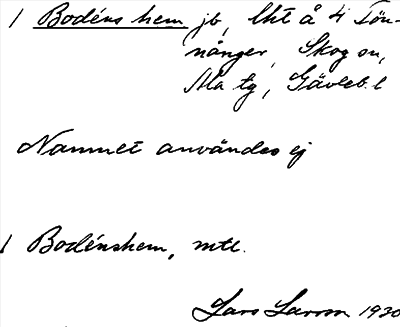 1 Bodéns hem jb, lht å 4 Tön-
nånger, Skog sn,
Ma tg, Gävleb. l
Namnet användes ej
1 Bodénshem, mtl.
Lars Larson 1930